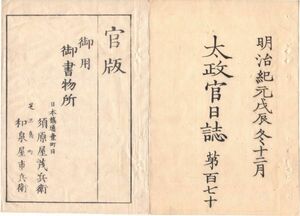 明治紀元戊辰冬十二月
太政官日誌 第百七十
官版
御用
御書物所
日本橋通壹町目
須原屋茂兵衛
芝三島町
和泉屋市兵衛